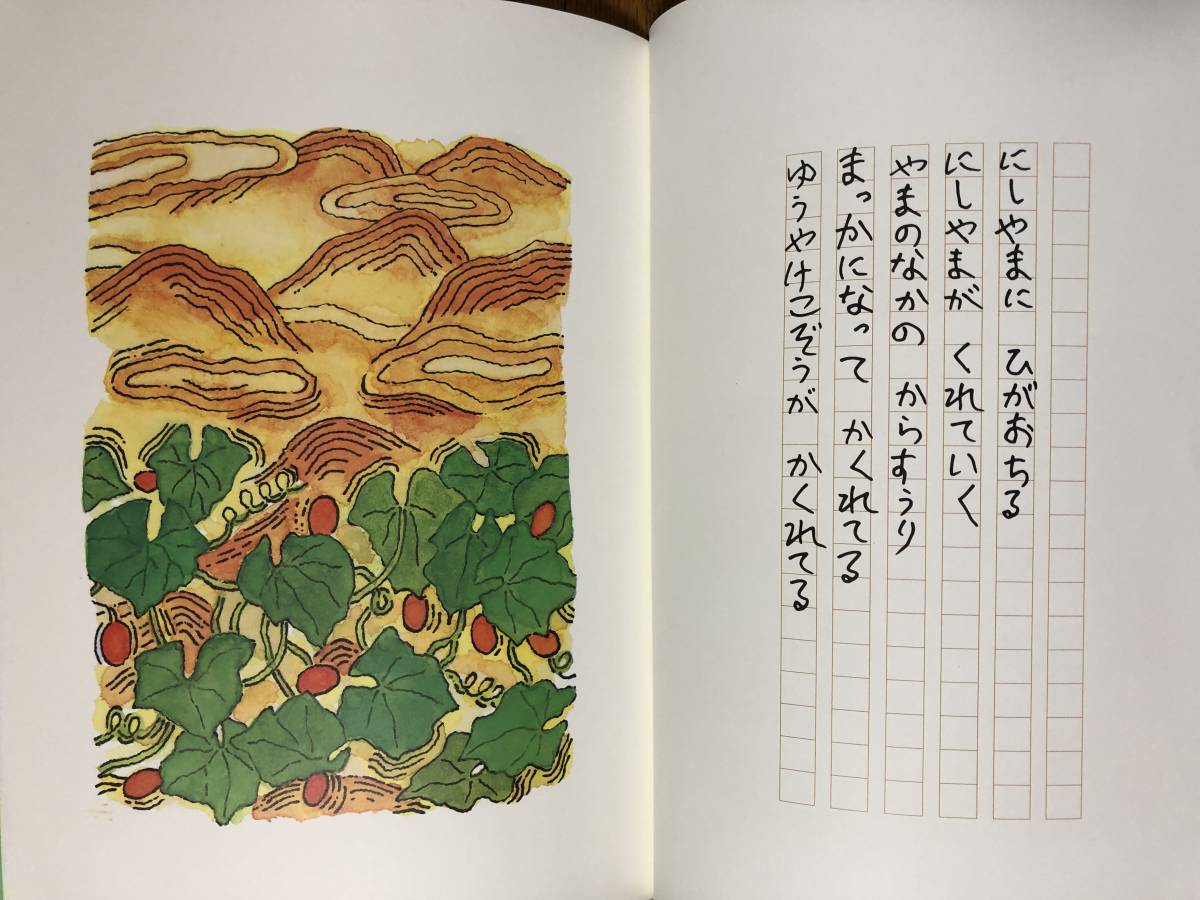 にしやまに　ひがおちる
にしやまが　くれていく
やまのなかの　からすうり
まっかになって　かくれてる
ゆうやけこぞうが　かくれてる